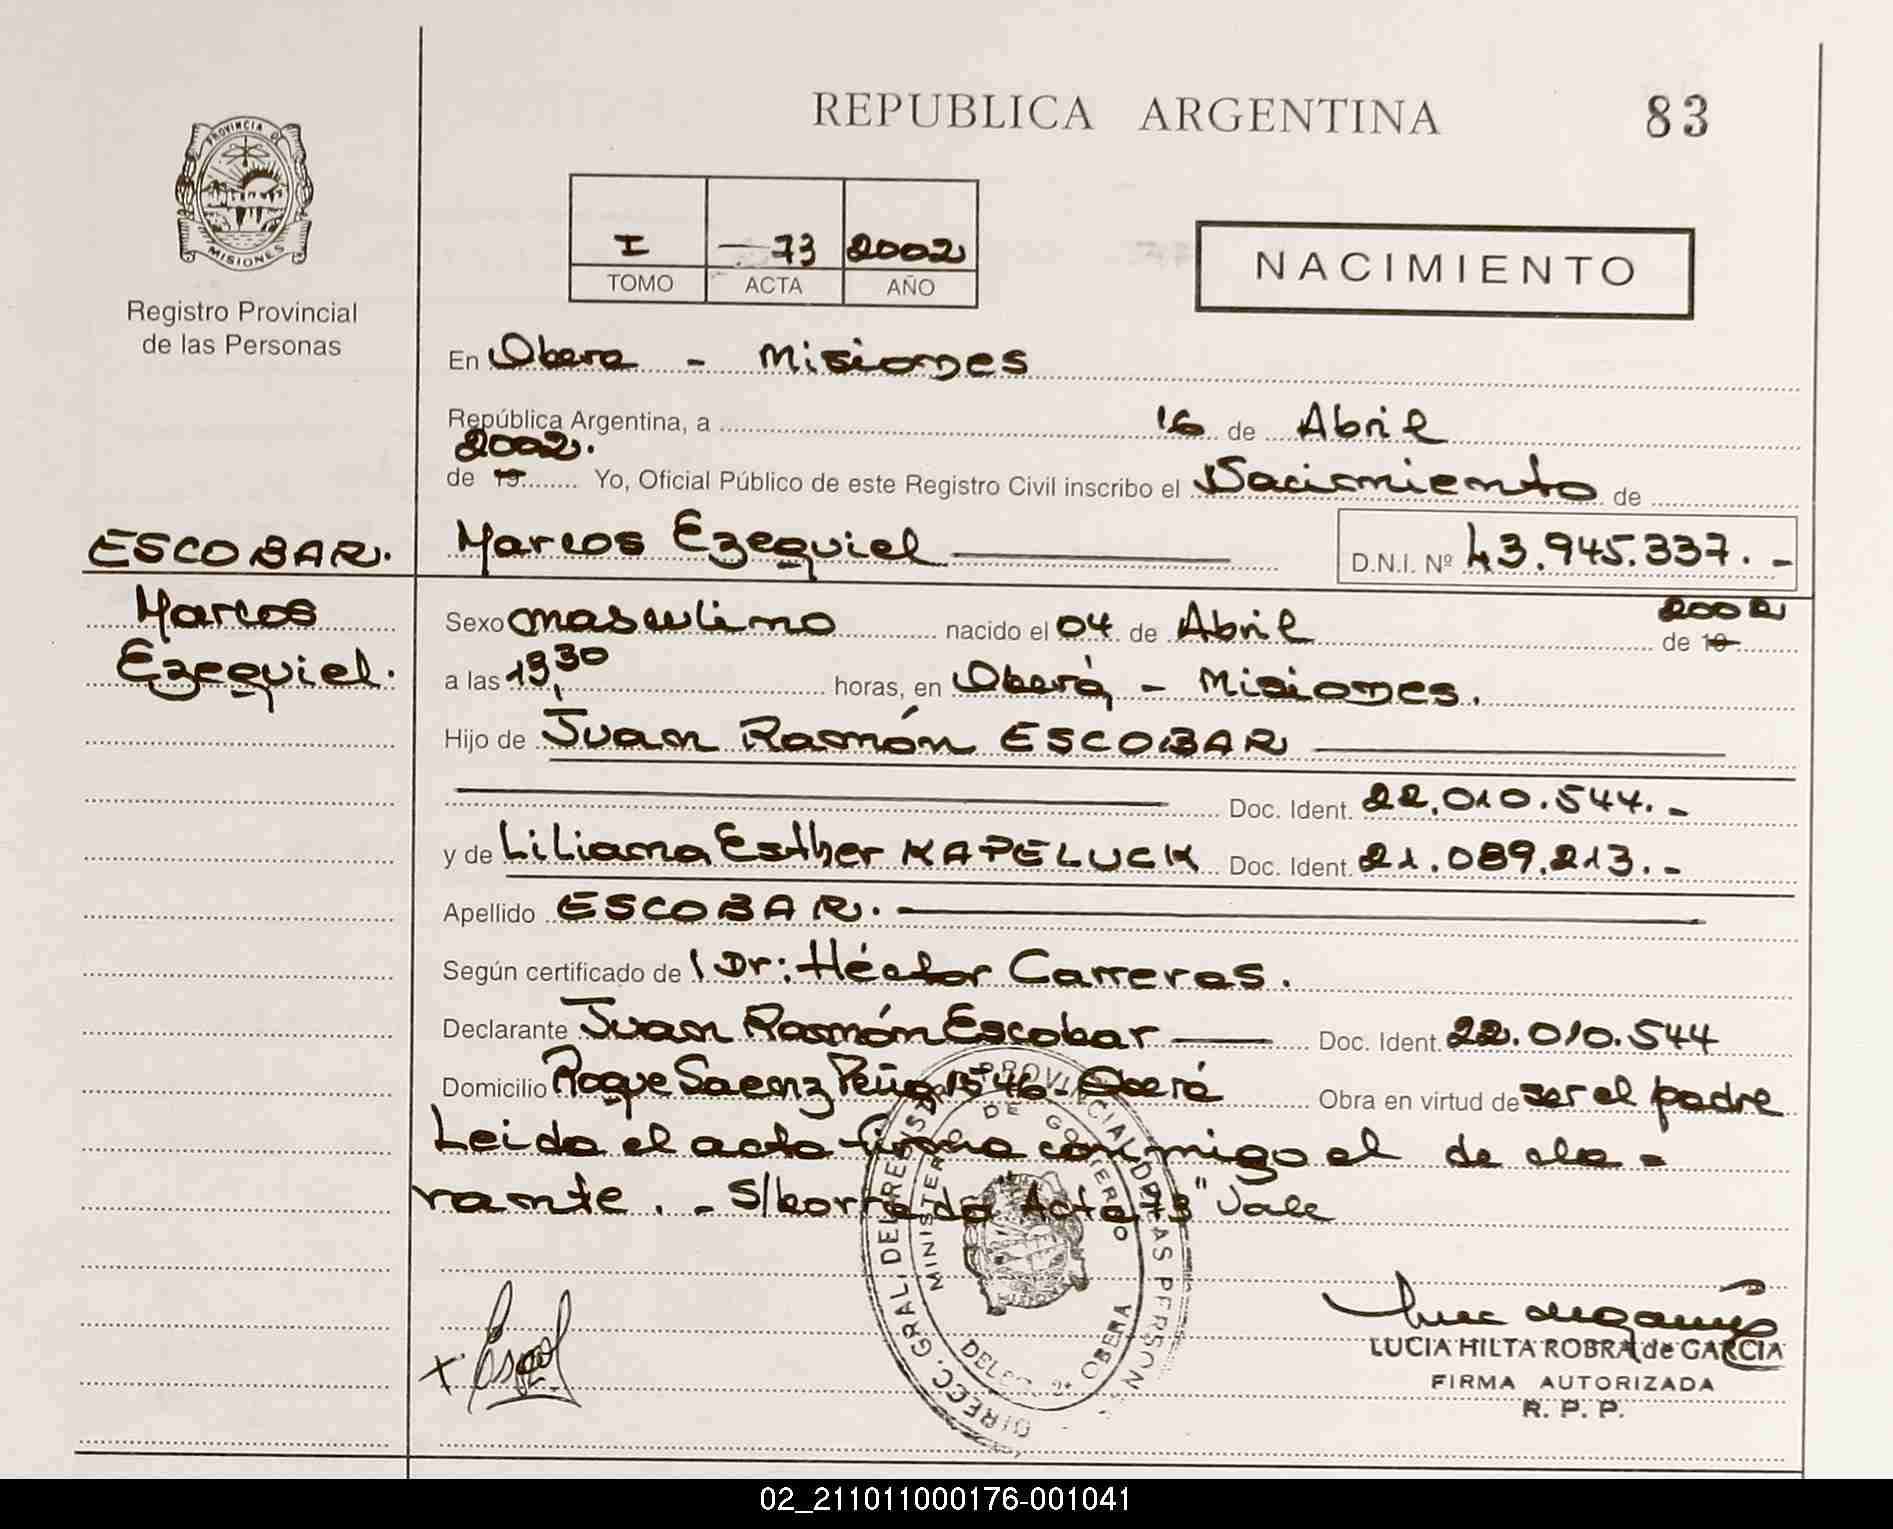 REPUBLICA ARGENTINA
83
PROVINCIA DE
MISIONES
Registro Provincial
de las Personas
I — 73 2002
TOMO ACTA AÑO
NACIMIENTO
En Obera - Misiones
República Argentina, a 16 de Abril
2002.
de 19 Yo, Oficial Público de este Registro Civil inscribo el Nacimiento de
ESCOBAR.
Marcos
Ezequiel.
Marcos Ezequiel D.N.I. Nº 43.945.337.-
2002
Sexo masculino nacido el 04 de Abril de 19
a las 13,30 horas, en Oberá, - Misiones.
Hijo de Juan Ramón ESCOBAR
Doc. Ident. 22.010.544.-
y de Liliana Esther KAPELUCK Doc. Ident. 21.089.213.-
Apellido ESCOBAR.
Según certificado de Dr: Héctor Carreras.
Declarante Juan Ramón Escobar Doc. Ident. 22.010.544
Domicilio Roque Saenz Peña 1546 - Oberá Obra en virtud de ser el padre
Leido el acto firma conmigo el decla-
rante. - S/borrado "Acta 73" Vale
DIRECC. GRAL. DEL REGISTRO PROVINCIAL DE LAS PERSONAS
MINISTERIO DE GOBIERNO
DELEG. 2ª OBERA
LUCIA HILTA ROBRA de GARCIA
FIRMA AUTORIZADA
R. P. P.
02_211011000176-001041